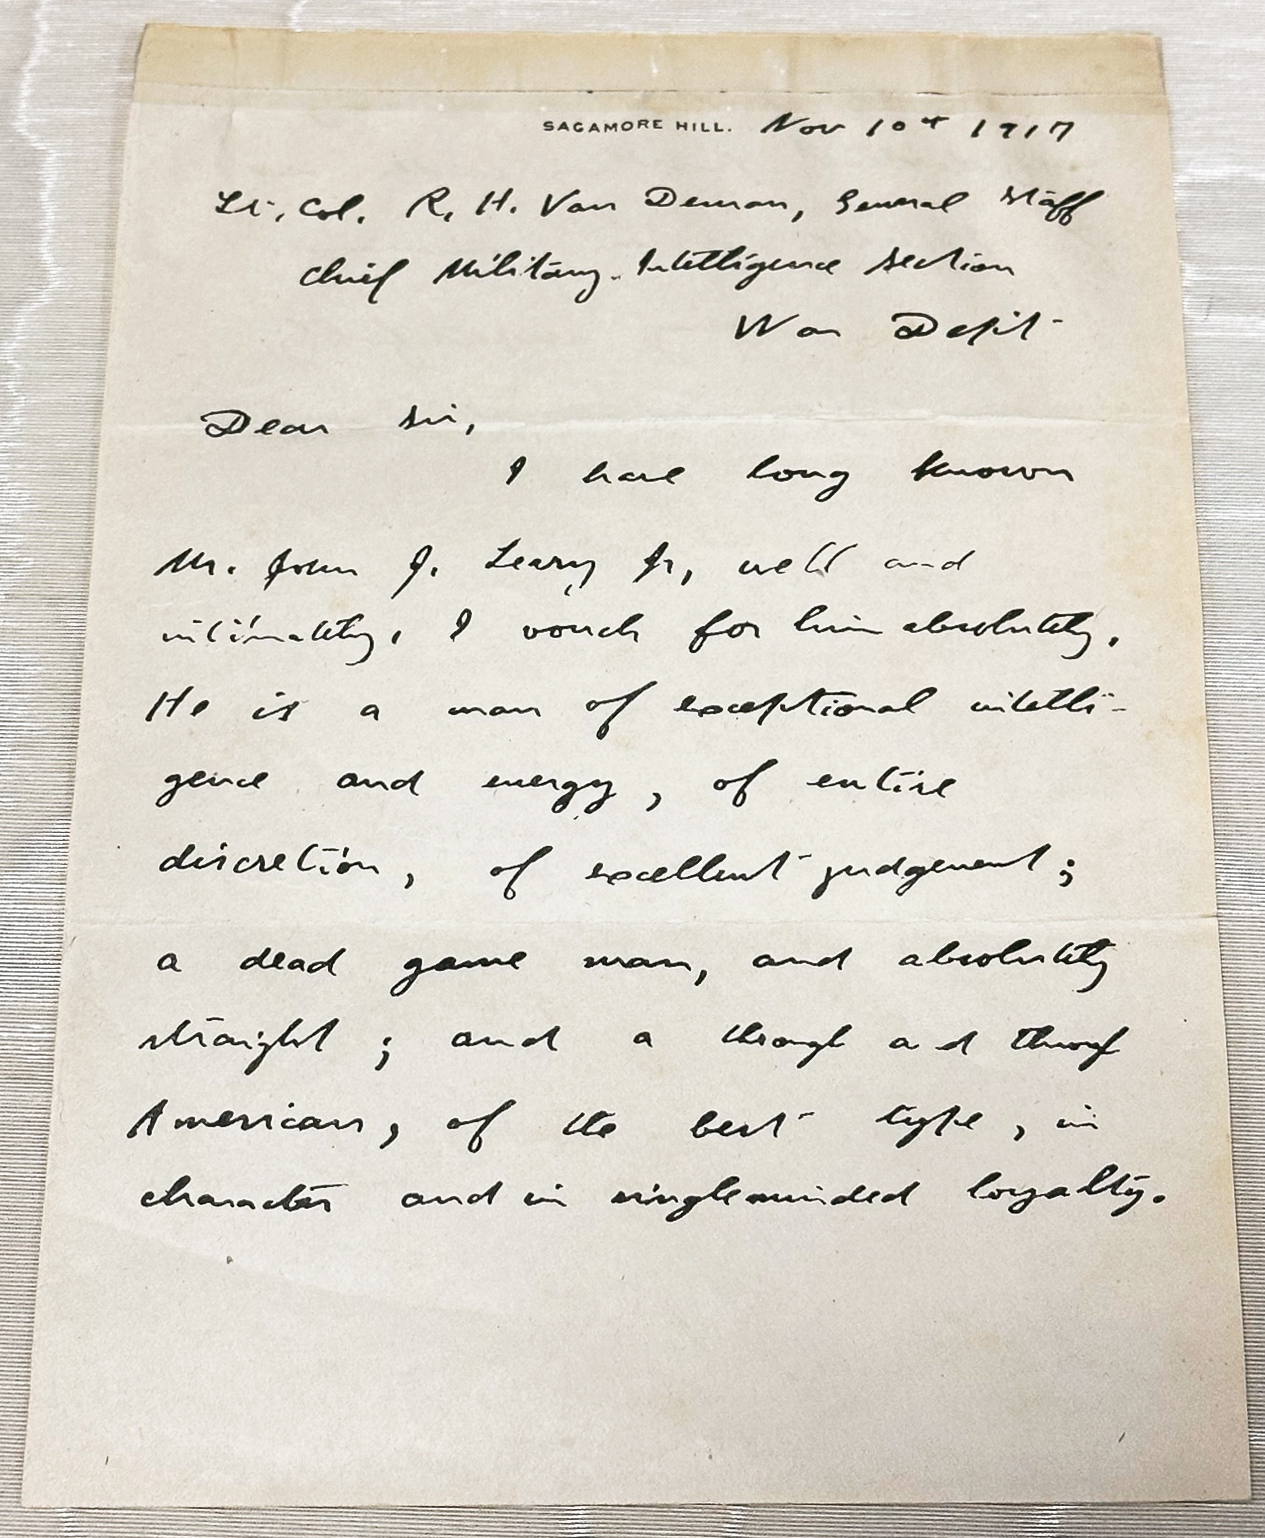 SAGAMORE HILL. Nov 10th 1917
Lt. Col. R. H. Van Deman, General Staff
Chief Military Intelligence Section
War Dept
Dear Sir,
I have long known
Mr. John J. Leary Jr, well and
intimately. I vouch for him absolutely.
He is a man of exceptional intelli-
gence and energy, of entire
discretion, of excellent judgement;
a dead game man, and absolutely
straight; and a through and through
American, of the best type, in
character and in singleminded loyalty.